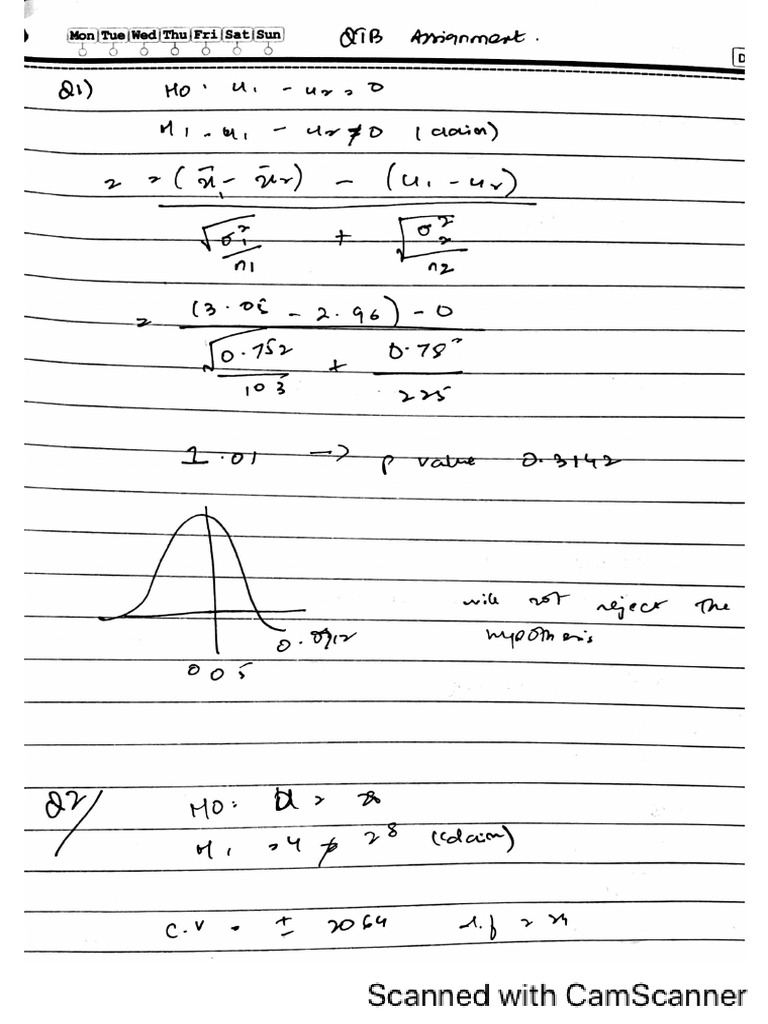 Mon Tue Wed Thu Fri Sat Sun
QTB Assignment.
D
Q1) H0: u1 - u2 = 0
H1 = u1 - u2 ≠ 0 (claim)
z = (x̄1 - x̄2) - (u1 - u2)
√σ1² / n1 + √σ2² / n2
= (3.05 - 2.96) - 0
√0.752 / 103 + 0.78² / 225
1.01 → p value 0.3142
will not reject the
hypothesis
0.05
Q2/ H0: u =
H1 = u ≠ 28 (claim)
C.V = ± 2064 d.f =
Scanned with CamScanner